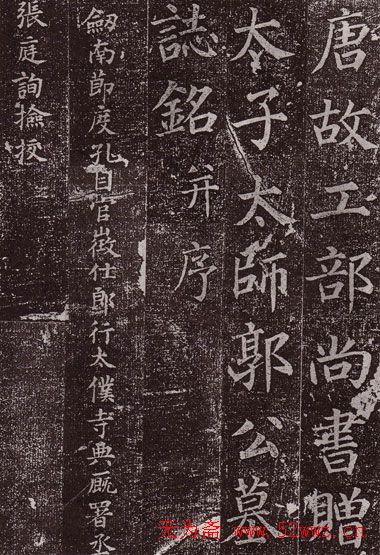 唐故工部尚書贈
太子太師郭公墓
誌銘 并序
劒南節度孔目官徵仕郎行太僕寺典厩署丞
張庭詢撿挍
无为斋 www.52wwz.cn